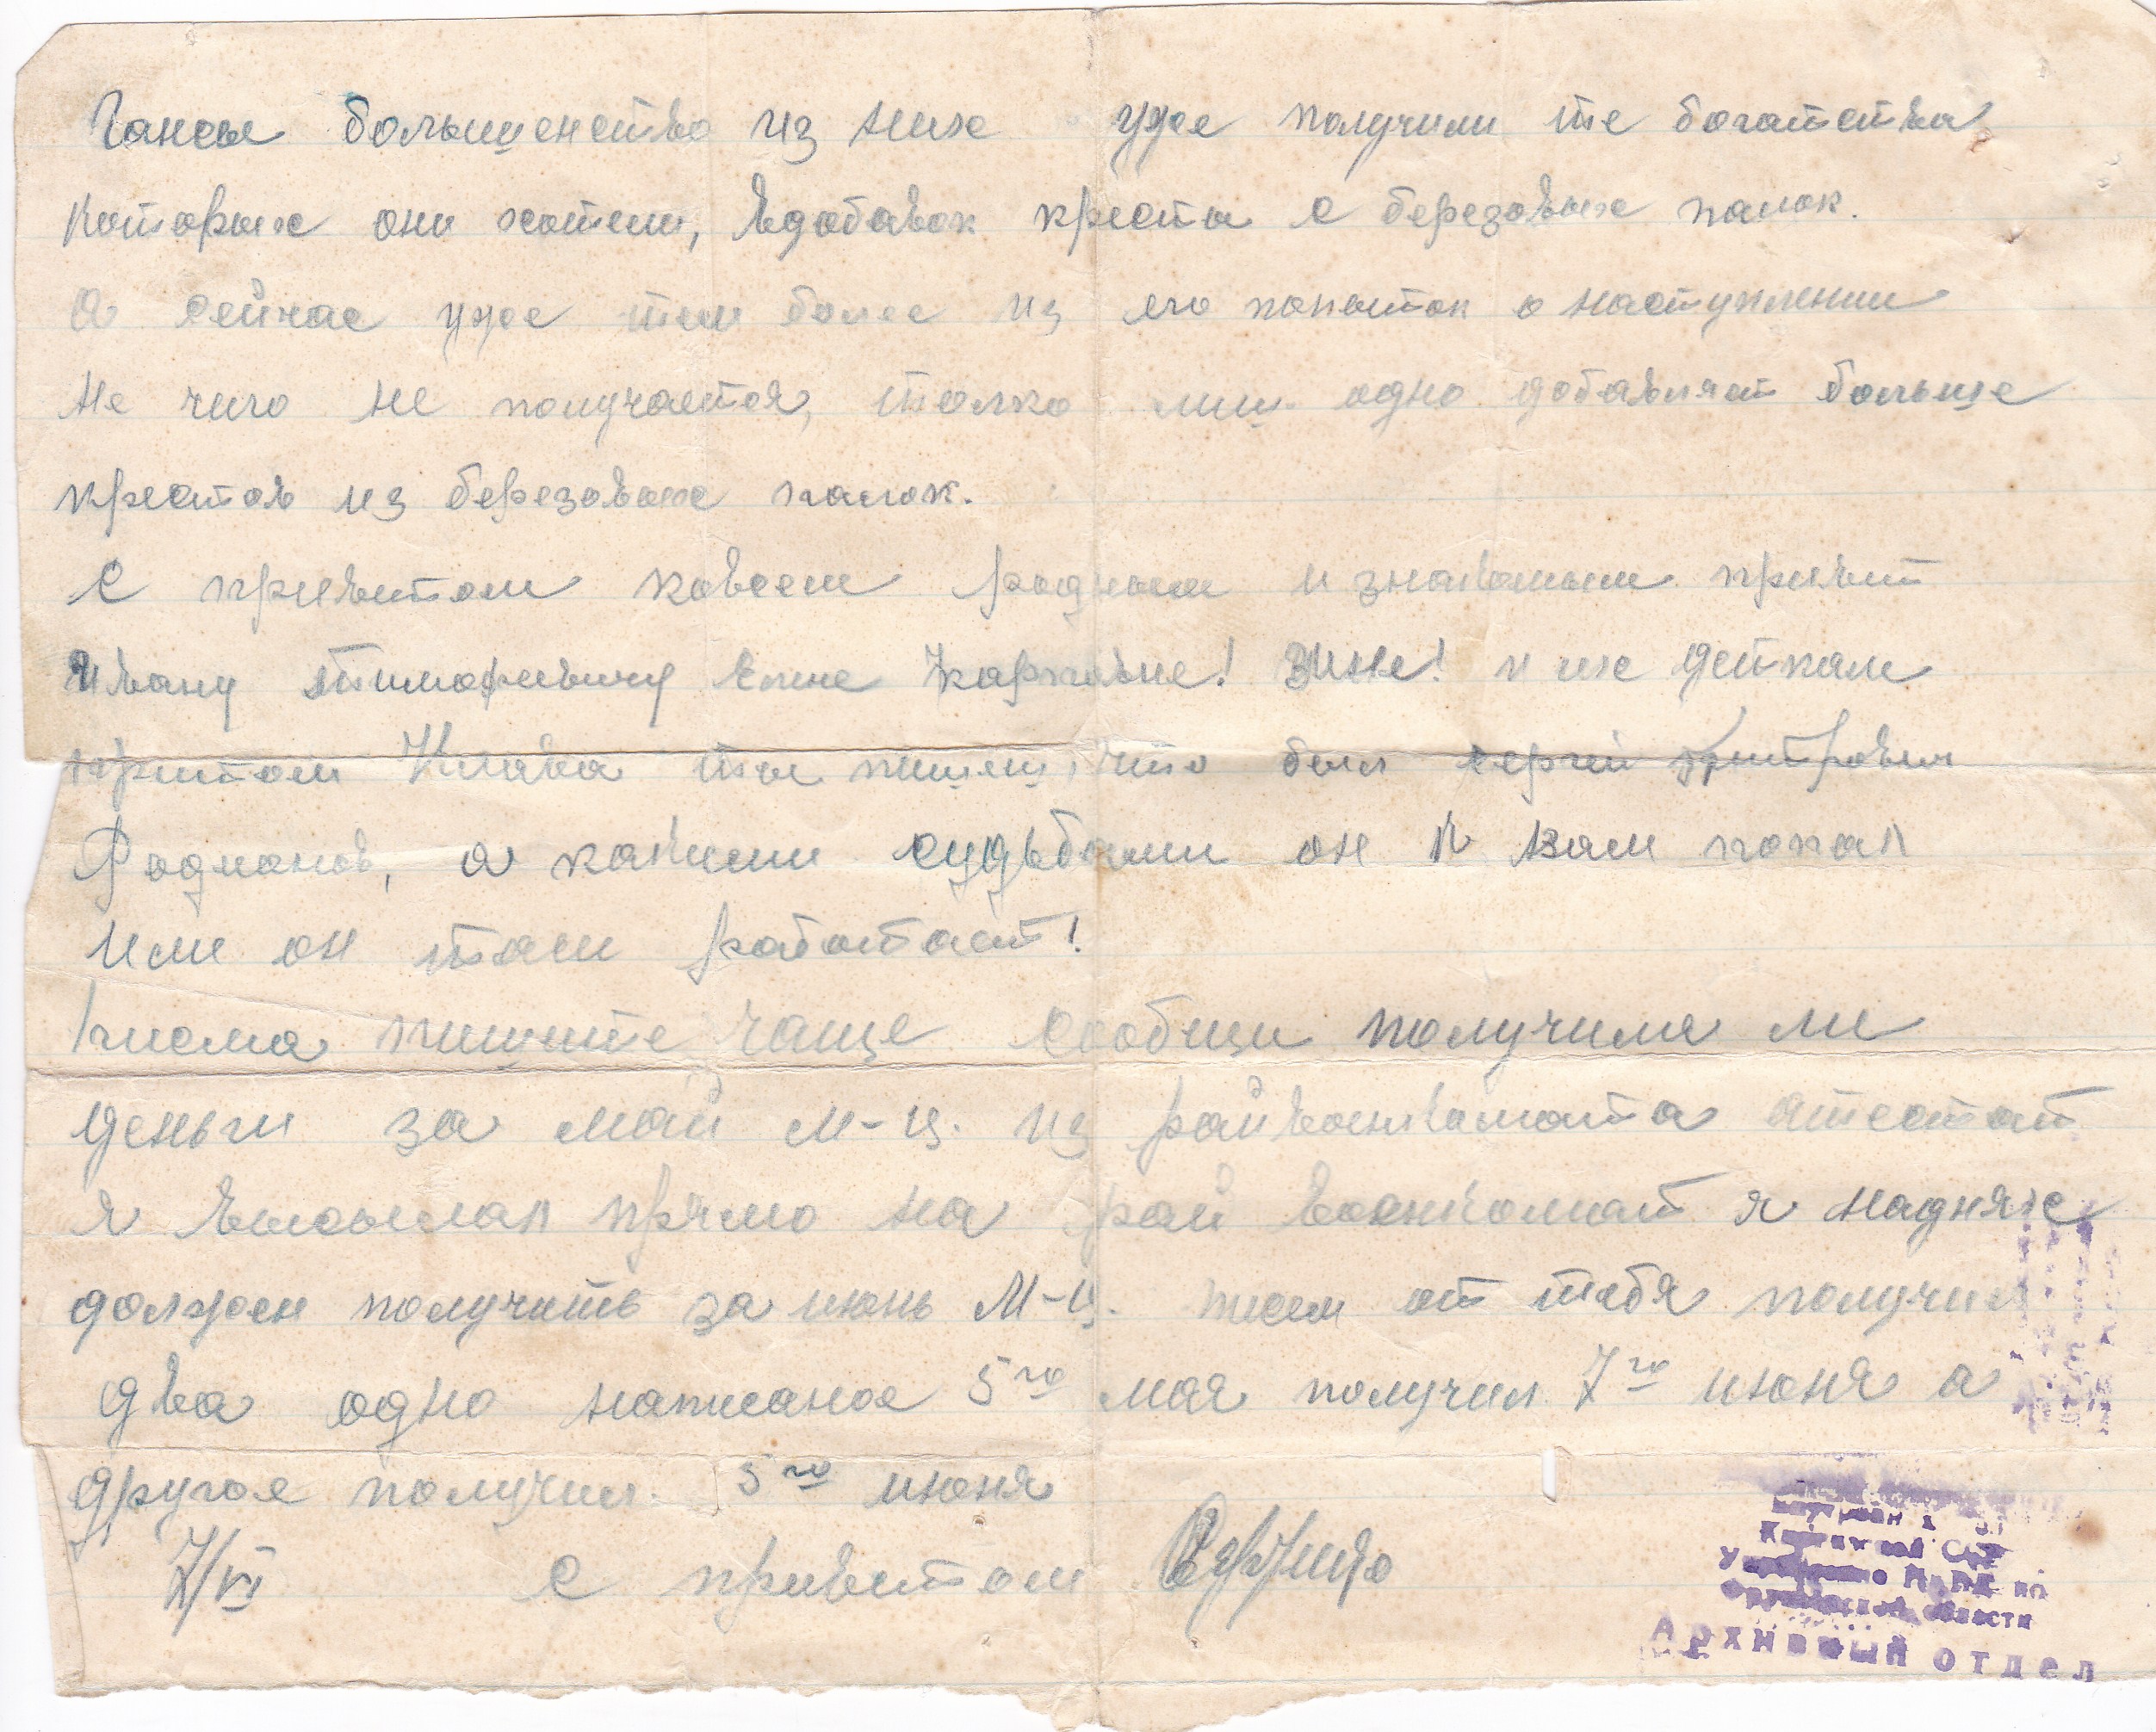 Гансы большенство из них уже получили те богатства
которых они хотели, вдобавок кресты с березовых палок.
а сейчас уже тем более из его попыток о наступлении
не чего не получается, толко лиш одно добавляет больше
крестов из березовых палок.
С приветом ковсем родным и знакомым привет
Ивану Тимофеевичу Елене Карповне! Зине! и их деткам
притом Клава ты пишеш, что был Сергей Дмитрович
Родманов, а какими судьбами он к вам попал
или он там работает!
Писма пишите чаще сообщи получила ли
деньги за май м-ц. из райвоенкамата атестат
я высылал прямо на рай военкомат я надняхс
должен получить за июнь М-ц. писем от тебя получил
два одно написаное 5го мая получил 7го июня а
другое получил 5го июня
7/VI с приветом
Управление
области
Архивный отдел